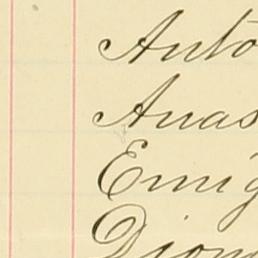 Anto
Anas
Emig
Diom